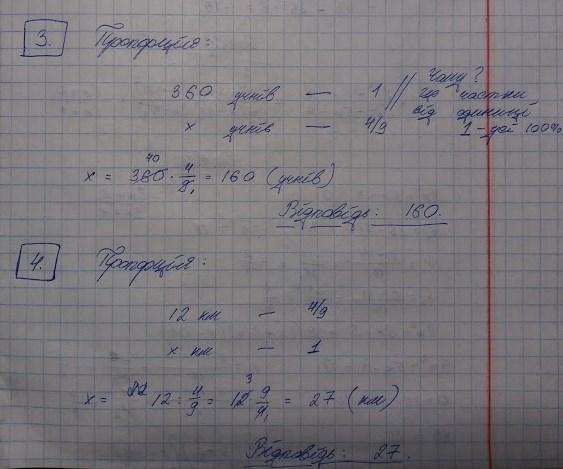 3. Пропорція:
360 учнів — 1 // Чому?
це частки
x учнів — 4/9 від одиниці
1 - усі 100%
x = 360 · 4/9 = 160 (учнів)
Відповідь: 160.
4. Пропорція:
12 км — 4/9
x км — 1
x = 12 : 4/9 = 12 · 9/4 = 27 (км)
Відповідь: 27.